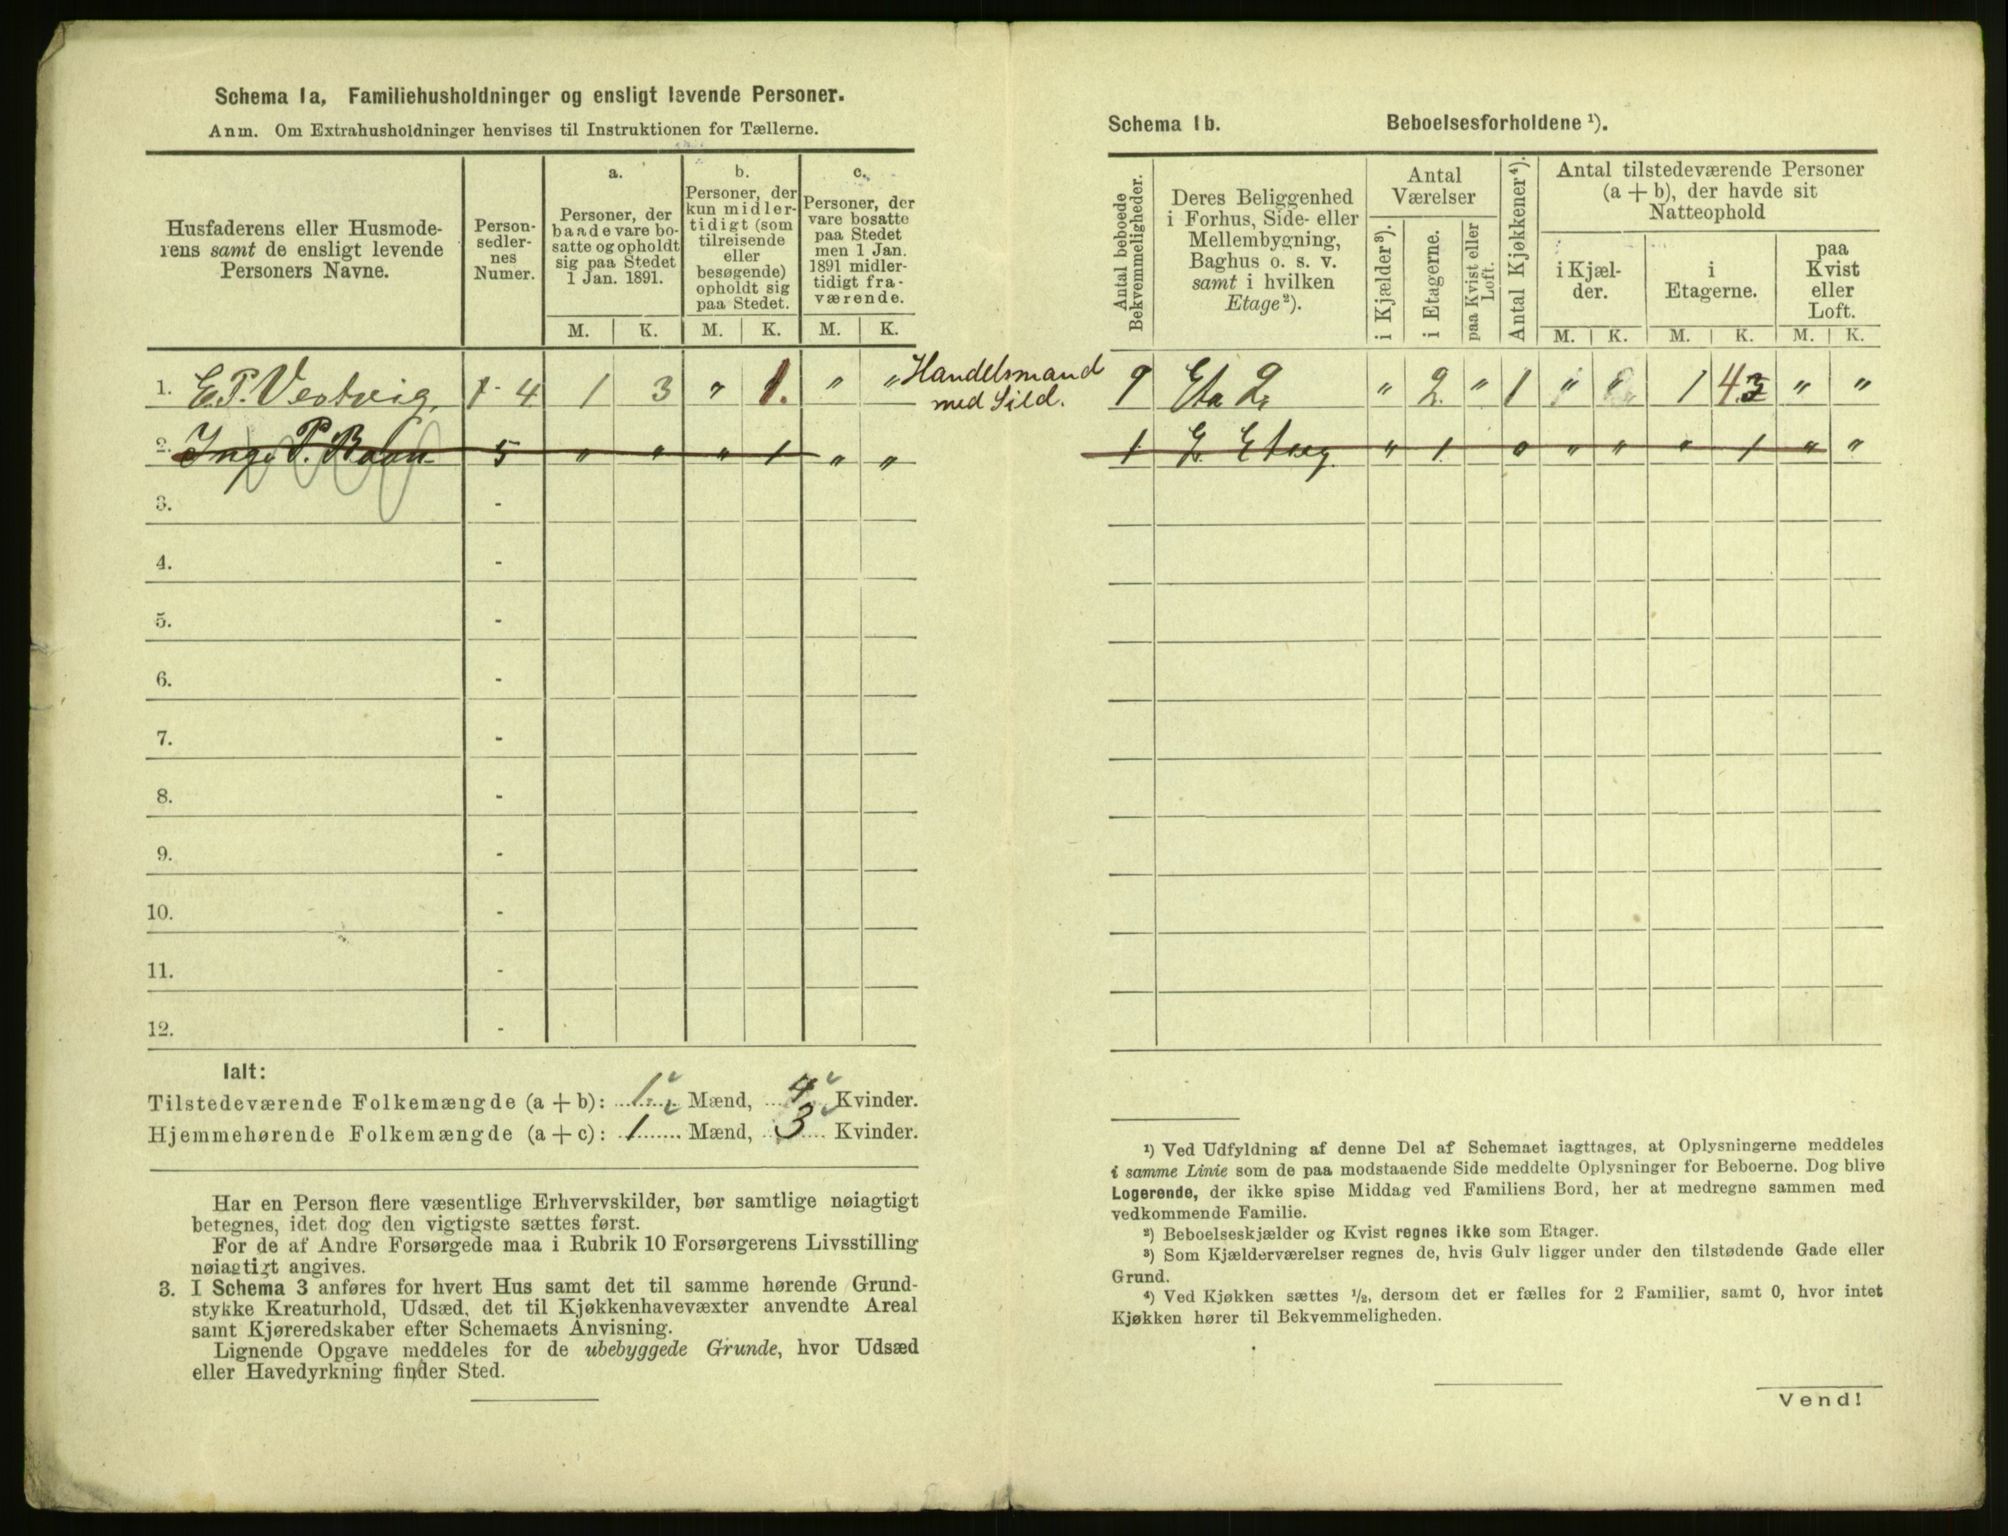 Schema 1a, Familiehusholdninger og ensligt levende Personer.
Anm. Om Extrahusholdninger henvises til Instruktionen for Tællerne.
Husfaderens eller Husmode-
rens samt de ensligt levende
Personers Navne.
Person-
sedler-
nes
Numer.
a.
Personer, der
baade vare bo-
satte og opholdt
sig paa Stedet
1 Jan. 1891.
b.
Personer, der
kun midler-
tidigt (som
tilreisende
eller
besøgende)
opholdt sig
paa Stedet.
c.
Personer, der
vare bosatte
paa Stedet
men 1 Jan.
1891 midler-
tidigt fra-
værende.
M. K. M. K. M. K.
1. E.P. Vestvig 1 - 4 1 3 " 1. " " Handelsmand
med Sild.
2. Inge P. 5 " " " 1 " "
3. -
4. -
5. -
6. -
7. -
8. -
9. -
10. -
11. -
12. -
Ialt:
Tilstedeværende Folkemængde (a + b): 1 Mænd, 4 Kvinder.
Hjemmehørende Folkemængde (a + c): 1 Mænd, 3 Kvinder.
Har en Person flere væsentlige Erhvervskilder, bør samtlige nøiagtigt
betegnes, idet dog den vigtigste sættes først.
For de af Andre Forsørgede maa i Rubrik 10 Forsørgerens Livsstilling
nøiagtigt angives.
3. I Schema 3 anføres for hvert Hus samt det til samme hørende Grund-
stykke Kreaturhold, Udsæd, det til Kjøkkenhavevæxter anvendte Areal
samt Kjøreredskaber efter Schemaets Anvisning.
Lignende Opgave meddeles for de ubebyggede Grunde, hvor Udsæd
eller Havedyrkning finder Sted.
Schema 1b. Beboelsesforholdene ¹).
Antal beboede
Bekvemmeligheder.
Deres Beliggenhed
i Forhus, Side- eller
Mellembygning,
Baghus o. s. v.
samt i hvilken
Etage²).
Antal
Værelser
i Kjælder³).
i Etagerne.
paa Kvist eller
Loft.
Antal Kjøkkener⁴).
Antal tilstedeværende Personer
(a + b), der havde sit
Natteophold
i Kjæl-
der.
i
Etagerne.
paa
Kvist
eller
Loft.
M. K. M. K. M. K.
Eta 2 " 2 " 1 " 1 4 3 " "
1 2 Etag " 1 0 " " " 1 " "
¹) Ved Udfyldning af denne Del af Schemaet iagttages, at Oplysningerne meddeles
i samme Linie som de paa modstaaende Side meddelte Oplysninger for Beboerne. Dog blive
Logerende, der ikke spise Middag ved Familiens Bord, her at medregne sammen med
vedkommende Familie.
²) Beboelseskjælder og Kvist regnes ikke som Etager.
³) Som Kjælderværelser regnes de, hvis Gulv ligger under den tilstødende Gade eller
Grund.
⁴) Ved Kjøkken sættes ½, dersom det er fælles for 2 Familier, samt 0, hvor intet
Kjøkken hører til Bekvemmeligheden.
Vend!